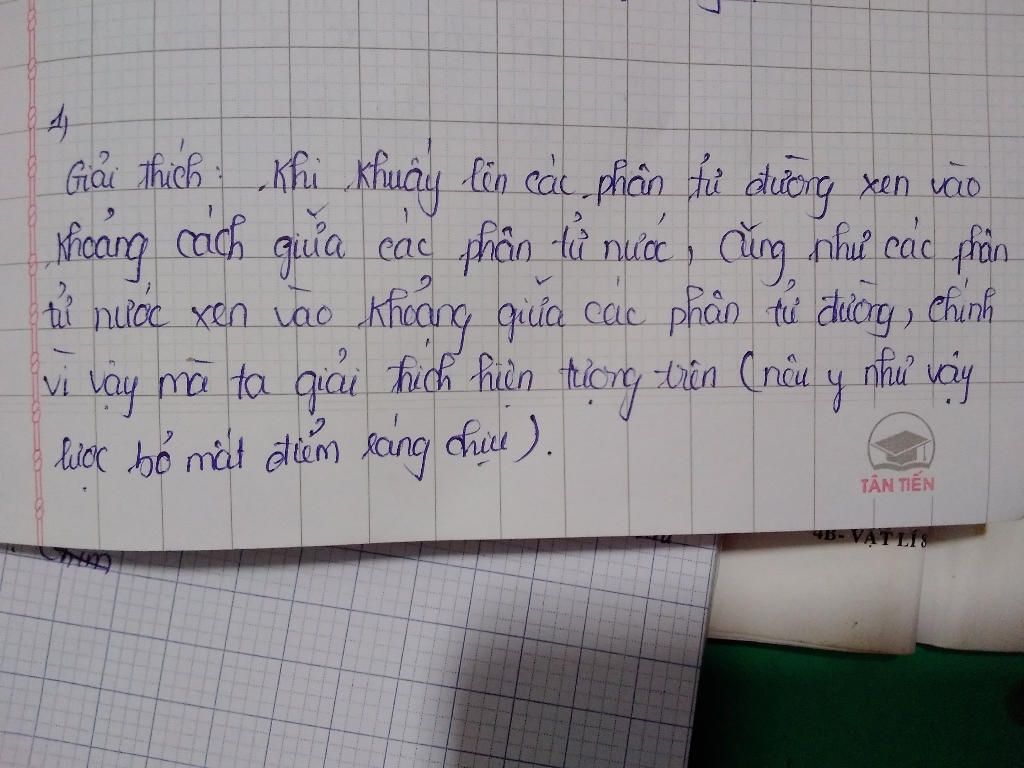 1,
Giải thích: Khi khuấy lên các phân tử đường xen vào
khoảng cách giữa các phân tử nước, cũng như các phân
tử nước xen vào khoảng giữa các phân tử đường, chính
vì vậy mà ta giải thích hiện tượng trên (nêu ý như vậy
lược bỏ mất điểm ráng chịu).
TÂN TIẾN
4B- VẬT LÍ 8